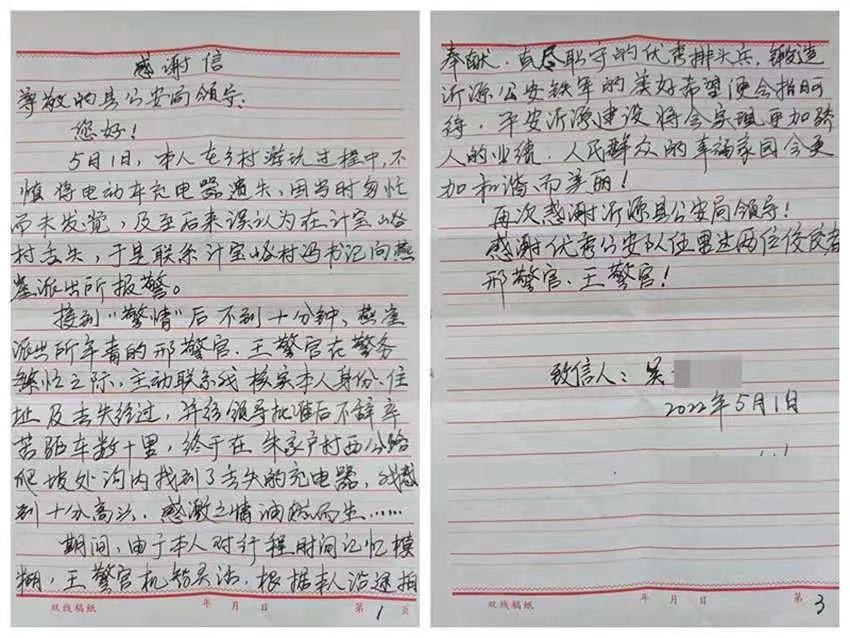 感谢信
尊敬的县公安局领导:
您好!
5月1日,本人在乡村游玩过程中,不
慎将电动车充电器遗失,因当时匆忙
而未发觉,及至后来误认为在计宝峪
村丢失,于是联系计宝峪村冯书记向燕
崖派出所报警。
接到“警情”后不到十分钟,燕崖
派出所年青的邢警官、王警官在警务
繁忙之际,主动联系我核实本人身份、住
址及丢失经过,并经领导批准后不辞辛
苦驱车数十里,终于在朱家户村西公路
爬坡处沟内找到了丢失的充电器,我感
到十分高兴,感激之情油然而生……
期间,由于本人对行程时间记忆模
糊,王警官机智灵活,根据本人沿途拍
双线稿纸 年 月 日 第 1 页
奉献、真尽职守的优秀排头兵,锻造
沂源公安铁军的美好希望便会指日可
待,平安沂源建设将会实现更加骄
人的业绩,人民群众的幸福家园会更
加和谐而美丽!
再次感谢沂源县公安局领导!
感谢优秀公安队伍里这两位佼佼者
邢警官、王警官!
致信人:吴
2022年5月1日
双线稿纸 年 月 日 第 3